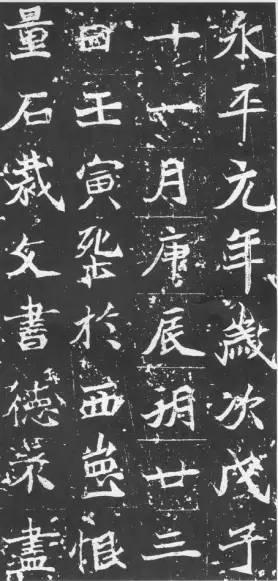 永平元年歲次戊子
十一月庚辰朔廿三
日壬寅葬於西崗恨
量石裁文書德